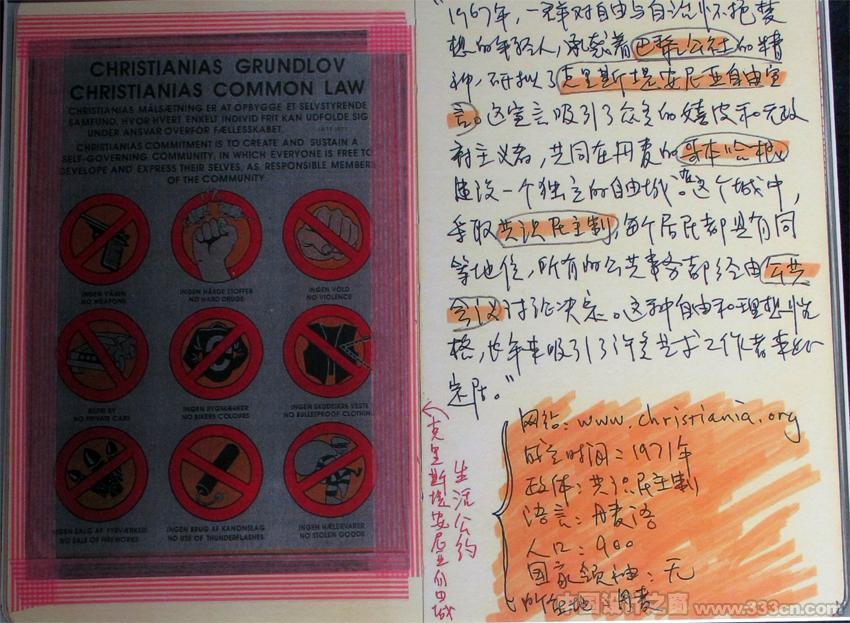 CHRISTIANIAS GRUNDLOV
CHRISTIANIAS COMMON LAW
CHRISTIANIAS MÅLSÆTNING ER AT OPBYGGE ET SELVSTYRENDE
SAMFUND, HVOR HVERT ENKELT INDIVID FRIT KAN UDFOLDE SIG
UNDER ANSVAR OVERFOR FÆLLESSKABET.
CHRISTIANIAS COMMITMENT IS TO CREATE AND SUSTAIN A
SELF-GOVERNING COMMUNITY, IN WHICH EVERYONE IS FREE TO
DEVELOPE AND EXPRESS THEIR SELVES, AS RESPONSIBLE MEMBERS
OF THE COMMUNITY
INGEN VÅBEN
NO WEAPONS
INGEN HÅRDE STOFFER
NO HARD DRUGS
INGEN VOLD
NO VIOLENCE
NO PRIVATE CARS
INGEN RYGMÆRKER
NO BIKERS COLOURS
INGEN SKUDSIKRE VESTE
NO BULLETPROOF CLOTHIN
INGEN SALG AF FYRVÆRKERI
NO SALE OF FIREWORKS
INGEN BRUG AF KANONSLAG
NO USE OF THUNDERFLASHES
INGEN HÆLERVARER
NO STOLEN GOODS
"1967年,一群对自由与自治怀抱梦
想的年轻人,承袭着巴黎公社的精
神,研拟了克里斯堤安尼亚自由宣
言。这宣言吸引了众多的嬉皮和无政
府主义者,共同在丹麦的哥本哈根
建设一个独立的自由城。这个城中,
采取共识民主制,每个居民都具有同
等地位,所有的公共事务都经由公共
会议讨论决定。这种自由和理想性
格,长年来吸引了许多艺术工作者来此
定居。"
克里斯堤安尼亚自由城
生活公约
网站:www.christiania.org
成立时间:1971年
政体:共识民主制
语言:丹麦语
人口:900
国家领袖:无
所在地 丹麦
中国设计之窗 www.333cn.com